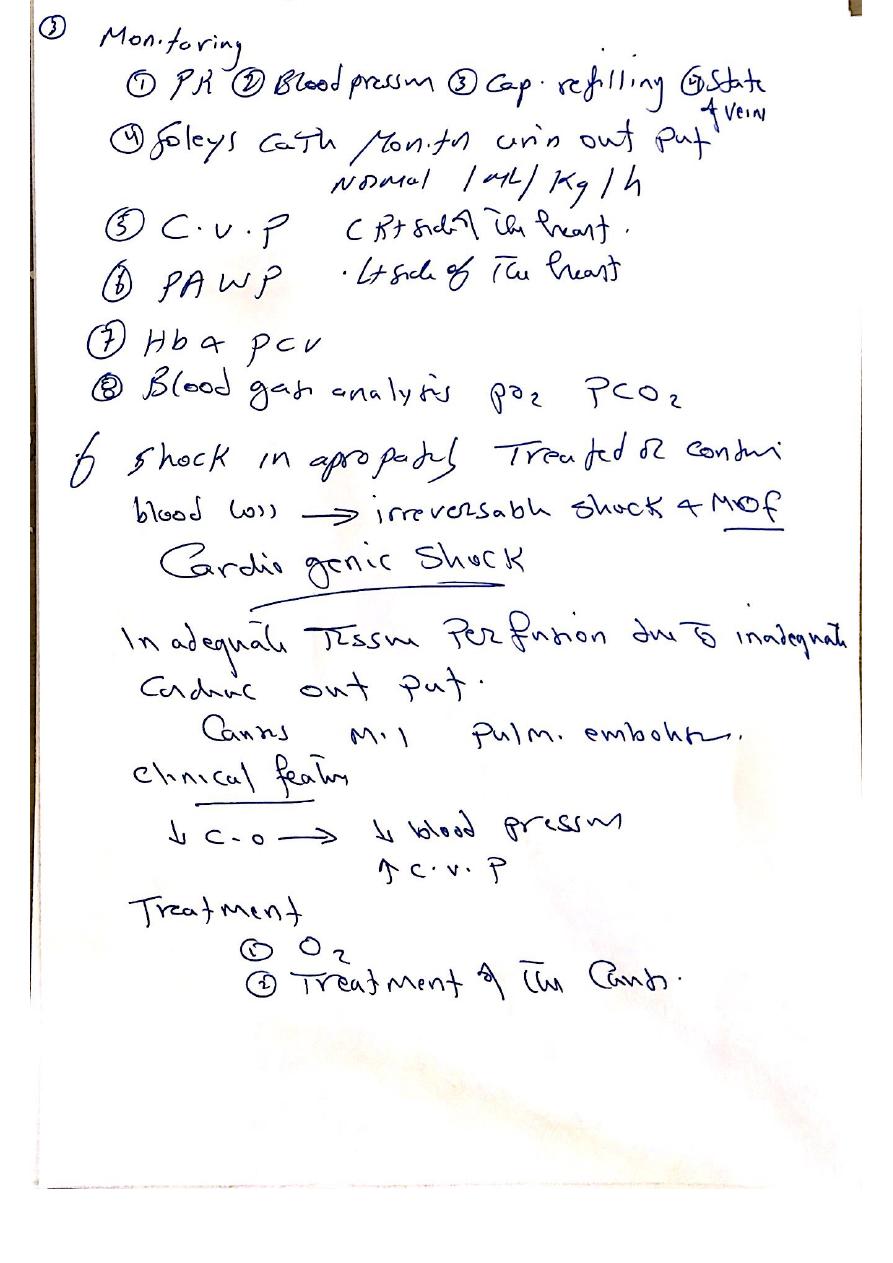 ③ Monitoring
① PR ② Blood pressure ③ Cap. refilling ④ State
of vein
④ Foleys Cath Monitor urin out put
Normal 1 mL/Kg/h
⑤ C.V.P ( Rt side of The heart.
⑥ PAWP . Lt side of The heart
⑦ Hb & PCV
⑧ Blood gas analysis PO2 PCO2
If shock in apropately Treated or continu
blood loss → irreversable shock & MOF
Cardio genic Shock
In adequate Tissue Perfusion due To inadequate
Cardiac out put.
Causes M.I Pulm. embolism.
Clinical feature
↓ C.O → ↓ blood pressure
↑ C.V.P
Treatment
① O2
② Treatment of The Cause.